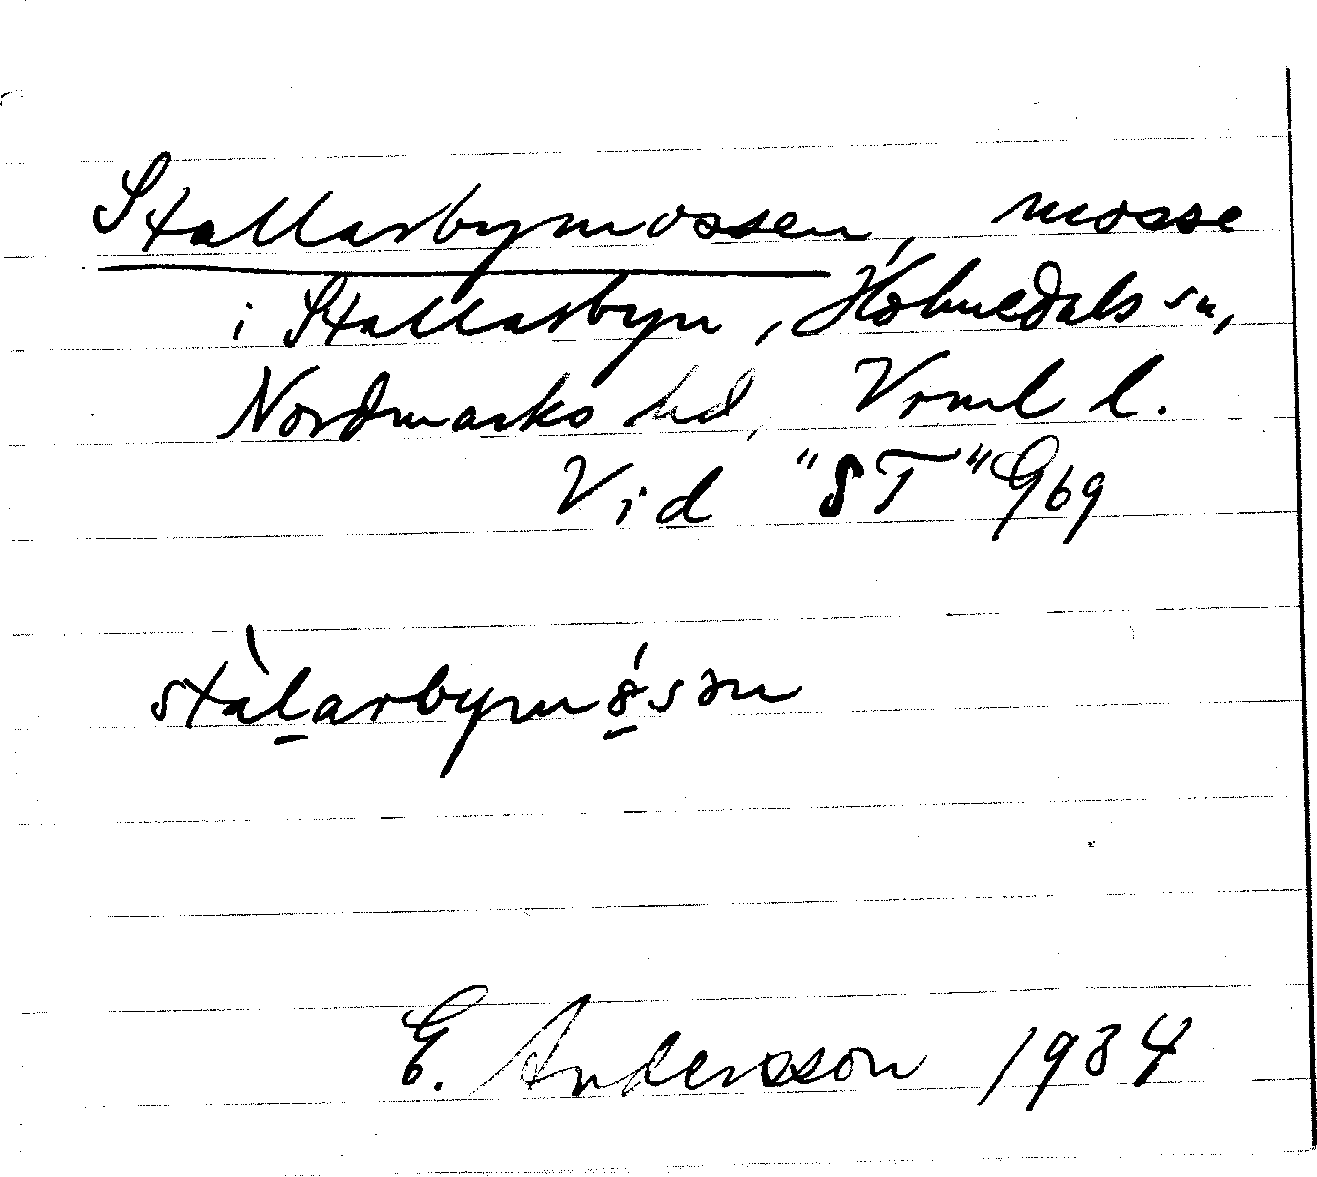 Stallarbymossen, mosse
i Stallarbyn, Holmedals sn,
Nordmarks hd, Vrml l.
Vid "ST" 9b9
stàlarbymósən
E. Andersson 1934